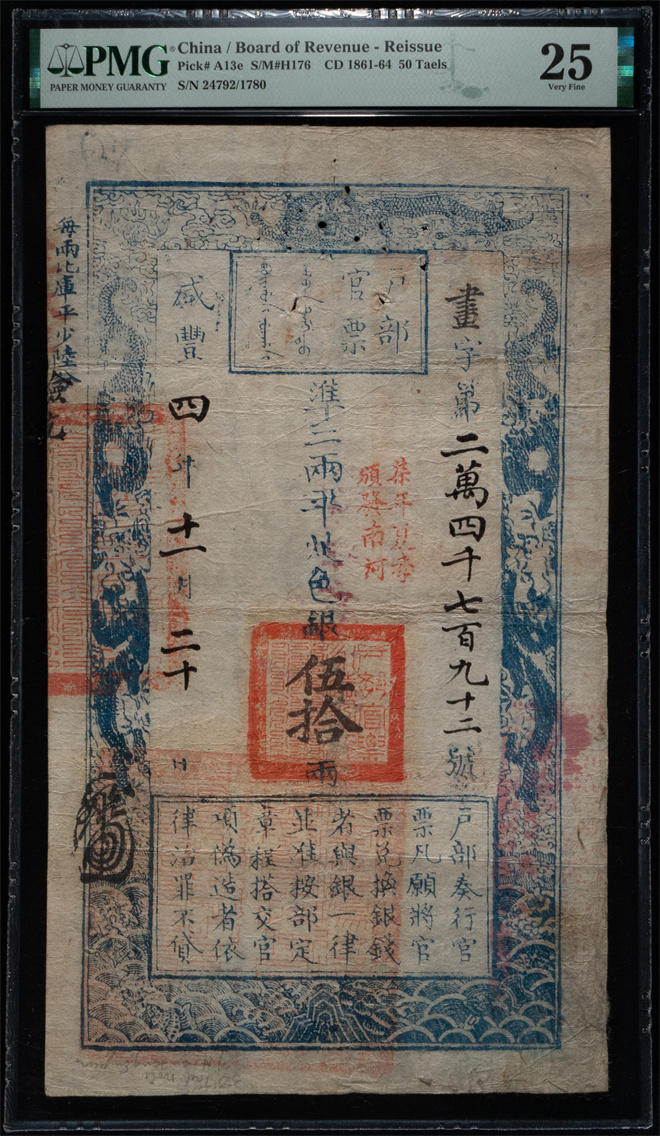 PMG
PAPER MONEY GUARANTY
China / Board of Revenue - Reissue
Pick# A13e S/M#H176 CD 1861-64 50 Taels
S/N 24792/1780
25
Very Fine
戶部
官票
畫字第二萬四千七百九十二號
柒年夏季
頒發南河
準二兩平足色銀伍拾兩
咸豐四年十一月二十日
每兩比庫平少陸分
戶部奏行官
票凡願將官
票兌換銀錢
者與銀一律
並准按部定
章程搭交官
項偽造者依
律治罪不貸